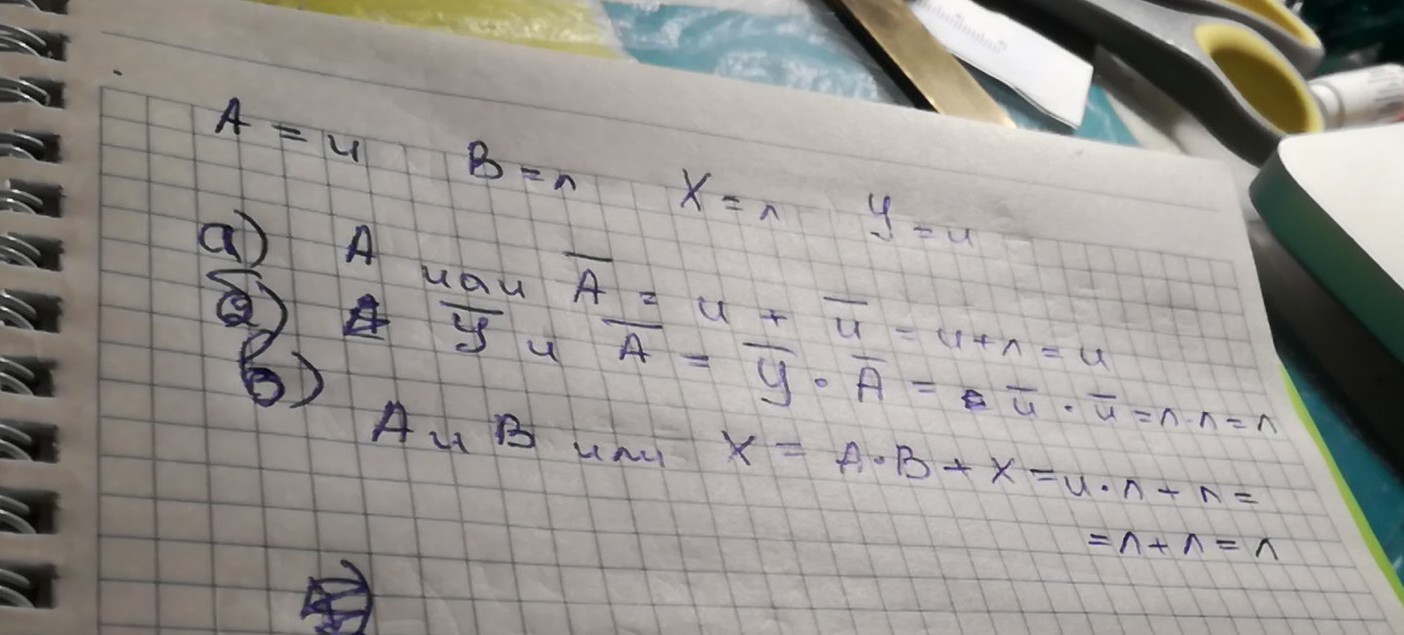 A = и B = л X = л У = и
а) A или A̅ = и + и̅ = и + л = и
б) У̅ и A̅ = У̅ · A̅ = и̅ · и̅ = л · л = л
в) A и B или X = A · B + X = и · л + л =
= л + л = л